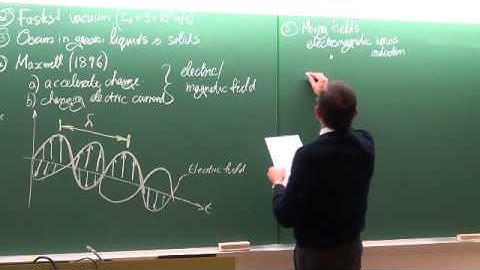 ② Fastest vacuum (c₀ = 3·10⁸ m/s)
③ Occurs in gases, liquids & solids
④ Maxwell (1896)
a) accelerate charge
b) changing electric current
electric/
magnetic field
λ
electric field
t
⑤ Moving fields
electromagnetic waves
radiation